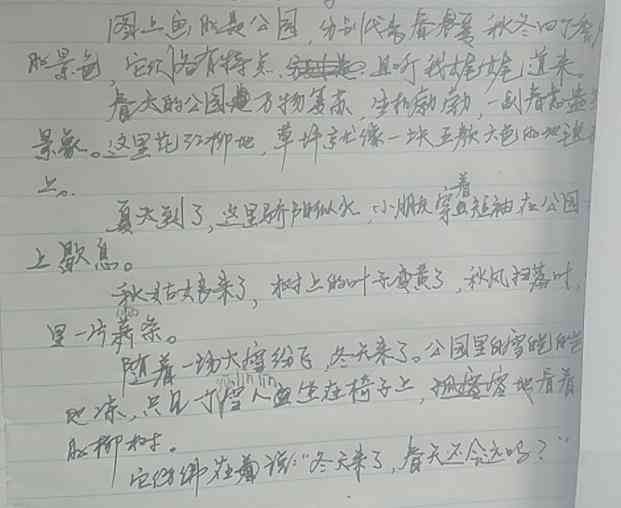 图上画的是公园，分别代表春夏秋冬四个季
的景色，它们各有特点，且听我娓娓道来。
春天的公园是万物复苏，生机勃勃，一副春意盎
景象。这里花红柳地，草坪就像一块五颜六色的地毯
上。
夏天到了，这里骄阳似火，小朋友穿着短袖在公园
上歇息。
秋姑娘来了，树上的叶子变黄了，秋风扫落叶，
里一片萧条。
随着一场大雪纷飞，冬天来了。公园里的雪皑皑
地冻，只见一个雪人坐在椅子上，孤零零地看着
的柳树。
它仿佛在说："冬天来了，春天还会远吗？"